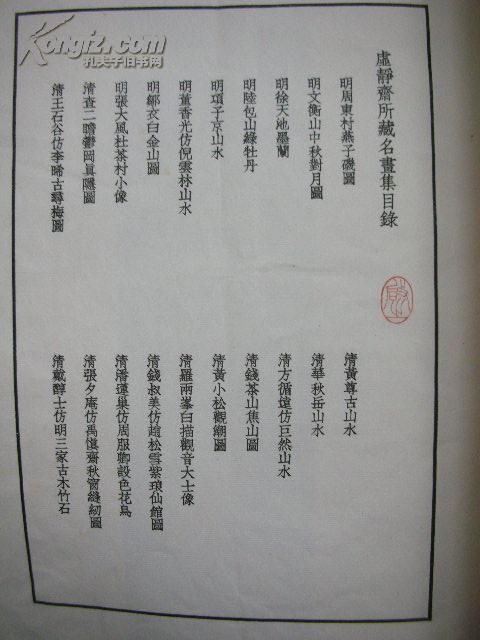 Kongfz.com
孔夫子旧书网
虛靜齋所藏名畫集目錄
明周東村燕子磯圖
明文衡山中秋對月圖
明徐天池墨蘭
明陸包山綠牡丹
明項子京山水
明董香光仿倪雲林山水
明鄒衣白金山圖
明張大風杜茶村小像
清查二瞻鬱岡真隱圖
清王石谷仿李晞古尋梅圖
清黃尊古山水
清華秋岳山水
清方循遠仿巨然山水
清錢茶山焦山圖
清黃小松觀潮圖
清羅兩峯白描觀音大士像
清錢叔美仿趙松雪紫琅仙館圖
清潘蓮巢仿周服卿設色花鳥
清張夕庵仿禹慎齋秋窗縫紉圖
清戴醇士仿明三家古木竹石